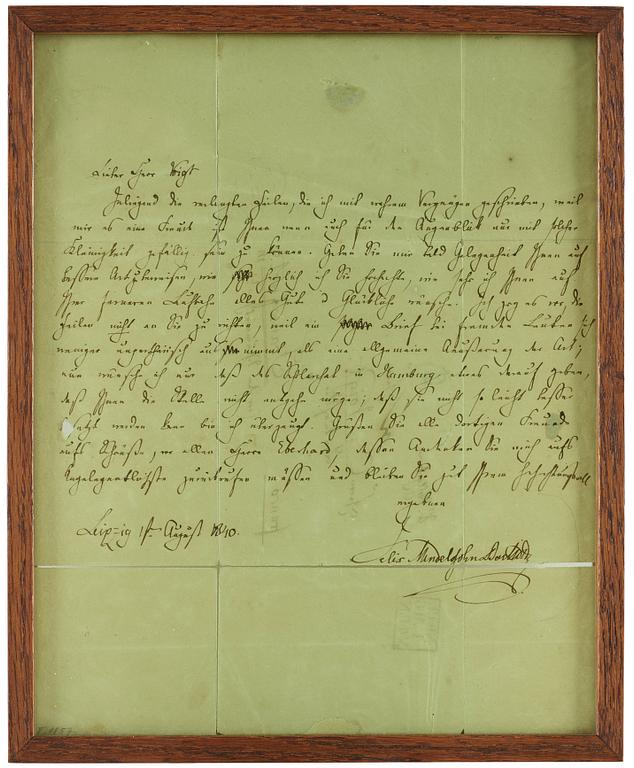 Lieber Herr Voigt
Inliegend die verlangten Zeilen, die ich mit wahrem Vergnügen geschrieben, weil
mir es eine Freude ist Ihnen wenn auch für den Augenblick nur mit solcher
Kleinigkeit gefällig sein zu können. Geben Sie mir bald Gelegenheit Ihnen auf
bessere Art zu beweisen, wie herzlich ich Sie hochachte wie sehr ich Ihnen auf
Ihrer ferneren alles Gute u Glückliche wünsche. Ich zog es vor die
Zeilen nicht an Sie zu richten, weil ein Brief bei fremden Leuten sich
weniger ausnimmt, als eine allgemeine Äußerung der Art;
nun wünsche ich nur daß das in Hamburg etwas darauf geben,
daß Ihnen die Stelle nicht entgehe möge; daß sie nicht so leicht besser
besetzt werden kann bin ich überzeugt. Grüßen Sie alle dortigen Freunde
aufs Schönste, vor allen Herrn Eberhard dessen Andenken Sie mich aufs
Angelegentlichste zurückrufen müssen und bleiben Sie gut Ihrem hochachtungsvoll
ergebnen
Leipzig 1st August 1840.
Felix Mendelssohn Bartholdy